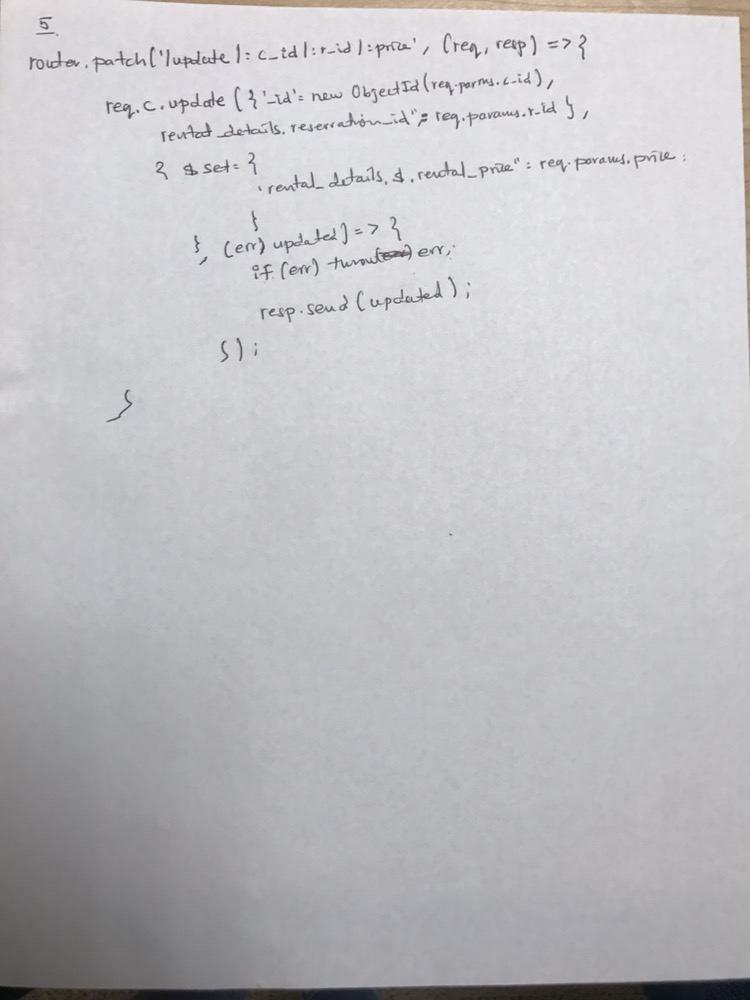 5.
router.patch('/update/:c_id/:r_id/:price', (req, resp) => {
req.c.update({'_id': new ObjectId(req.parms.c_id),
rental_details.reservation_id": req.params.r_id},
{ $set: {
'rental_details.$.rental_price": req.params.price;
}
}, (err, updated) => {
if (err) err;
resp.send(updated);
});
}